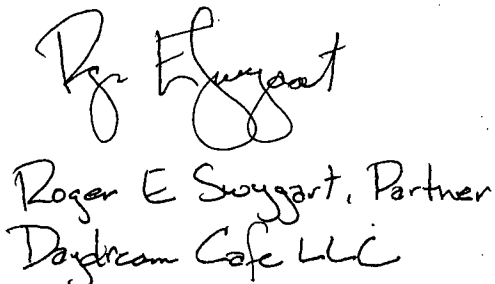 Roger E Swygart
Roger E Swygart, Partner
Daydream Cafe LLC